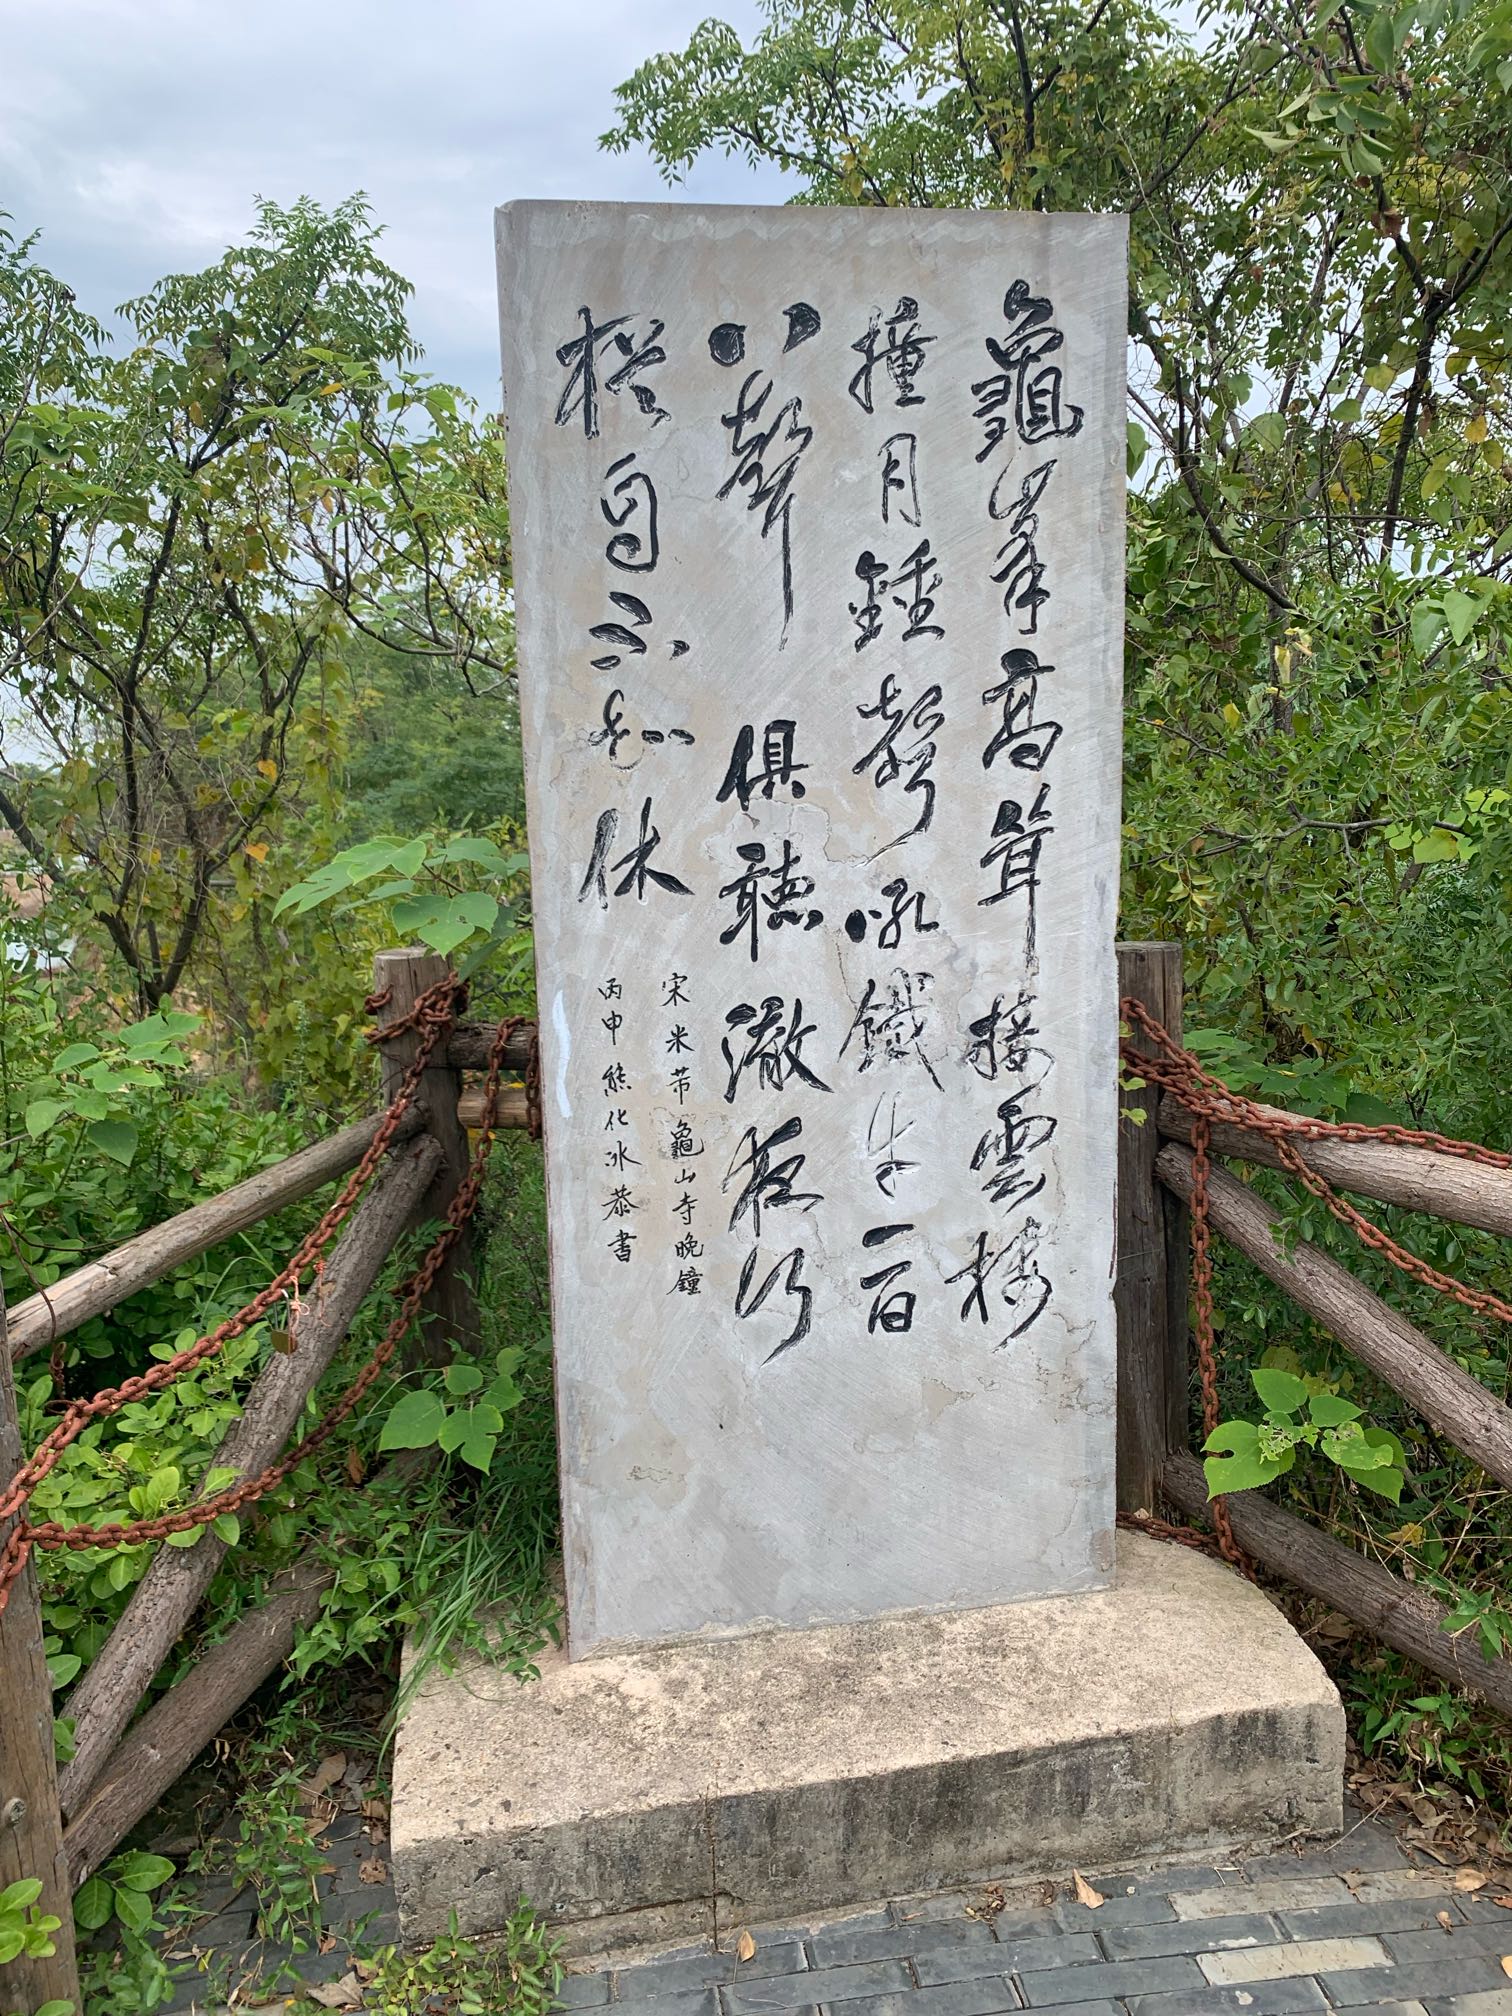 龜峯高聳接雲樓
撞月鍾聲吼鐵牛一百
八聲俱聽澈夜行
猶自不知休
宋米芾龜山寺晚鐘
丙申熊化冰恭書